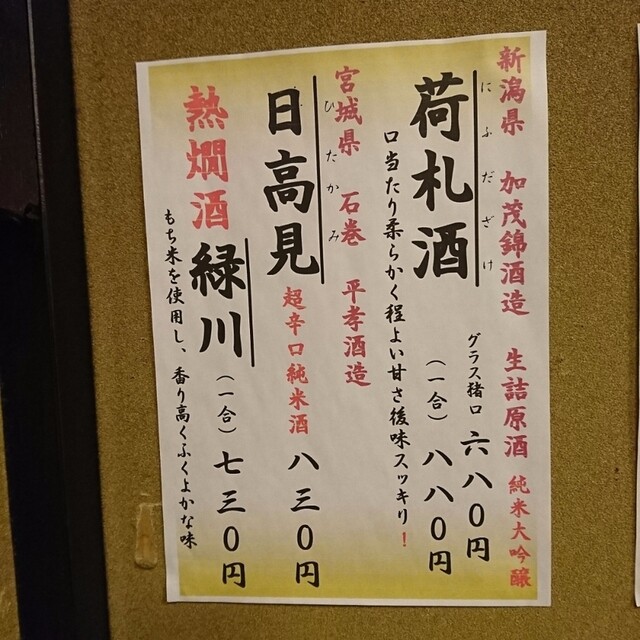 新潟県 加茂錦酒造 生詰原酒 純米大吟醸
にふだざけ
荷札酒
グラス猪口 六八〇円
(一合) 八八〇円
口当たり柔らかく程よい甘さ後味スッキリ!
宮城県 石巻 平孝酒造
ひたかみ
日高見
超辛口純米酒 八三〇円
熱燗酒
緑川
(一合) 七三〇円
もち米を使用し、香り高くふくよかな味